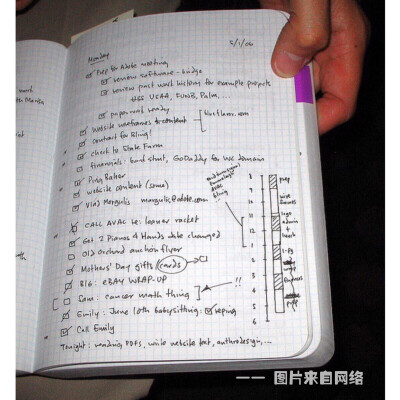 Monday
5/1/06
Prep for Adobe meeting
review software - bridge
review past work history for example projects
USAA, FUNB, Palm, ...
paperwork ready
website wireframes to content
contract for Bling!
check to State Farm
financials: bond stmt, GoDaddy for use domain
Ping Baker
website content (some)
Vlad Margulis margulis@adobe.com
CALL AVAC re: loaner racket
Get 2 Pianos 4 Hands date changed
Old Orchard anchor flyer
Mothers' Day gifts cards
B16: EBAY WRAP-UP
Sam: cancer march thing
!!
Emily: June 10th babysitting:
Call Emily
Tonight: reading PDFs, write website text, anthrodesign, ...
8
9
10
11
12
1
2
3
4
5
6
prep
wire
frames
admin
+
lunch
wrap
—— 图片来自网络